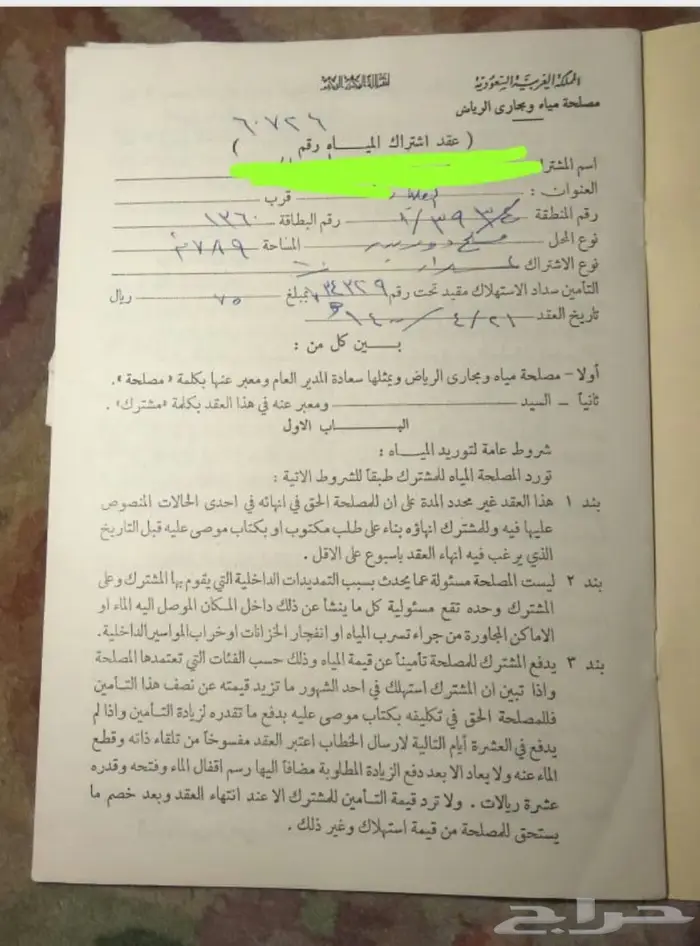 المملكة العربية السعودية
مصلحة مياه ومجارى الرياض
٦٠٧٢٦
( عقد اشتراك الميـــاه رقم )
اسم المشترك
العنوان : قرب
رقم المنطقة رقم البطاقة ١٣٦٠
نوع المحل المساحة ٣٧٨٩
نوع الاشتراك
التأمين سداد الاستهلاك مقيد تحت رقم ٣٤٣٢٩ بمبلغ ٧٥ ريال
تاريخ العقد ٢١/٤/١٤٠٠
بـــين كل من :
أولا - مصلحة مياه ومجارى الرياض ويمثلها سعادة المدير العام ومعبر عنها بكلمة «مصلحة» .
ثانياً - السيد ومعبر عنه في هذا العقد بكلمة «مشترك» .
البـــــاب الاول
شروط عامة لتوريد الميـــاه :
تورد المصلحة المياه للمشترك طبقاً للشروط الاتية :
بند ١ هذا العقد غير محدد المدة على ان للمصلحة الحق في انهائه في احدى الحالات المنصوص
عليها فيه وللمشترك انهاؤه بناء على طلب مكتوب او بكتاب موصى عليه قبل التاريخ
الذي يرغب فيه انهاء العقد باسبوع على الاقل .
بند ٢ ليست المصلحة مسئولة عما يحدث بسبب التمديدات الداخلية التي يقوم بها المشترك وعلى
المشترك وحده تقع مسئولية كل ما ينشأ عن ذلك داخل المكان الموصل اليه الماء او
الاماكن المجاورة من جراء تسرب المياه او انفجار الخزانات اوخراب المواسير الداخلية.
بند ٣ يدفع المشترك للمصلحة تأميناً عن قيمة المياه وذلك حسب الفئات التي تعتمدها المصلحة
واذا تبين ان المشترك استهلك في احد الشهور ما تزيد قيمته عن نصف هذا التـأمين
فللمصلحة الحق في تكليفه بكتاب موصى عليه بدفع ما تقدره لزيادة التـأمين واذا لم
يدفع في العشرة أيام التالية لارسال الخطاب اعتبر العقد مفسوخاً من تلقاء ذاته وقطع
الماء عنه ولا يعاد الا بعد دفع الزيادة المطلوبة مضافاً اليها رسم اقفال الماء وفتحه وقدره
عشرة ريالات . ولا ترد قيمة التـأمين للمشترك الا عند انتهاء العقد وبعد خصم ما
يستحق للمصلحة من قيمة استهلاك وغير ذلك .
حراج